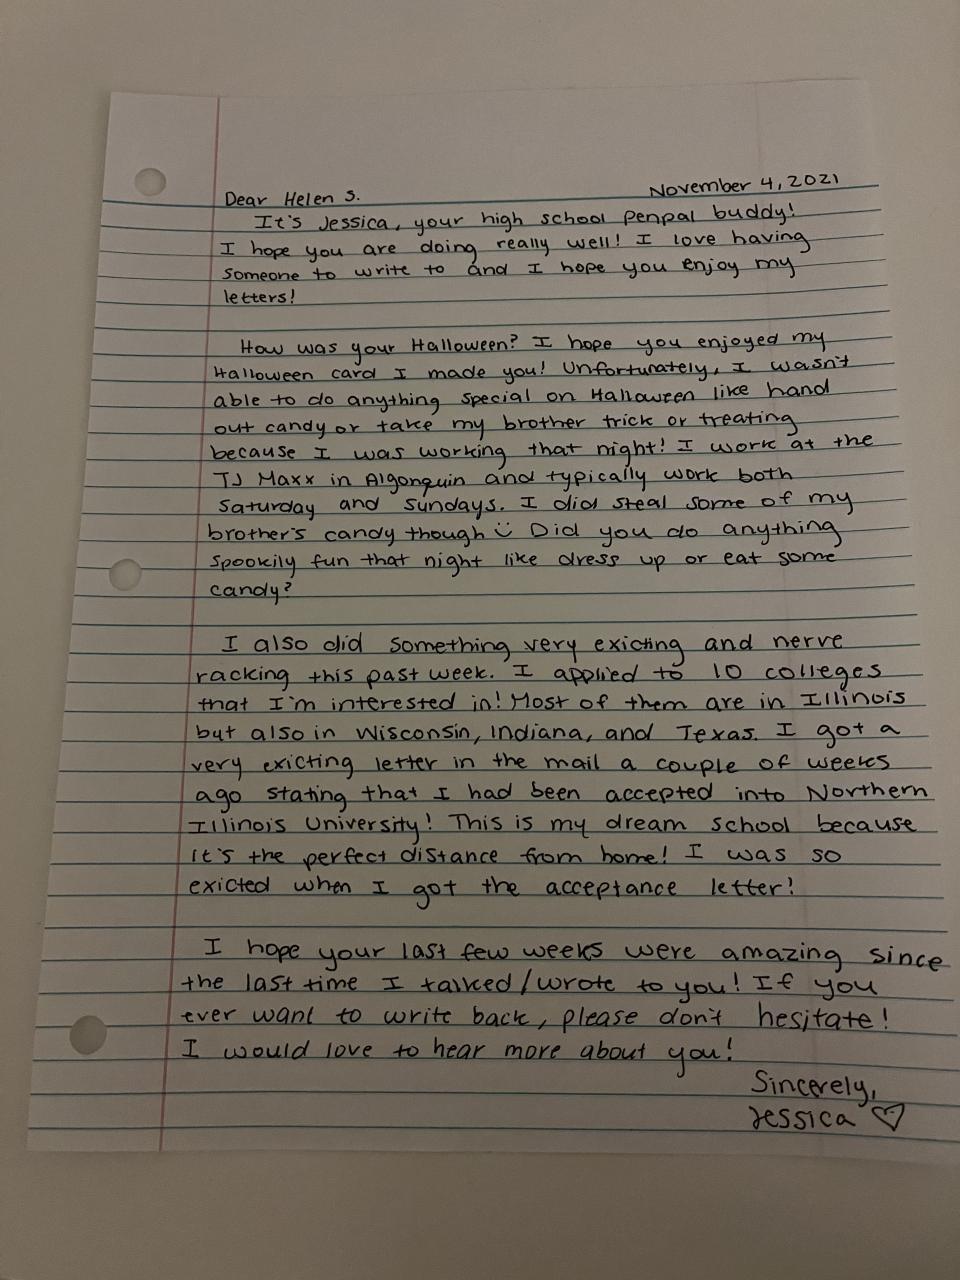 Dear Helen S.
November 4, 2021
It's Jessica, your high school penpal buddy!
I hope you are doing really well! I love having
someone to write to and I hope you enjoy my
letters!
How was your Halloween? I hope you enjoyed my
Halloween card I made you! Unfortunately, I wasn't
able to do anything special on Halloween like hand
out candy or take my brother trick or treating
because I was working that night! I work at the
TJ Maxx in Algonquin and typically work both
Saturday and Sundays. I did steal some of my
brother's candy though ü Did you do anything
spookily fun that night like dress up or eat some
candy?
I also did something very exicting and nerve
racking this past week. I applied to 10 colleges
that I'm interested in! Most of them are in Illinois
but also in Wisconsin, Indiana, and Texas. I got a
very exicting letter in the mail a couple of weeks
ago stating that I had been accepted into Northern
Illinois University! This is my dream school because
it's the perfect distance from home! I was so
exicted when I got the acceptance letter!
I hope your last few weeks were amazing since
the last time I talked/wrote to you! If you
ever want to write back, please don't hesitate!
I would love to hear more about you!
Sincerely,
Jessica ♡